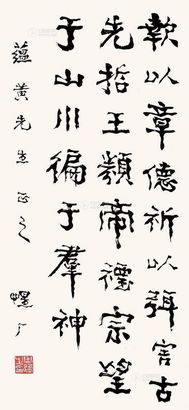 以章德祈以弭害古
先哲王類帝禋宗望
于山川徧于羣神
蘊黄先生正之 厂